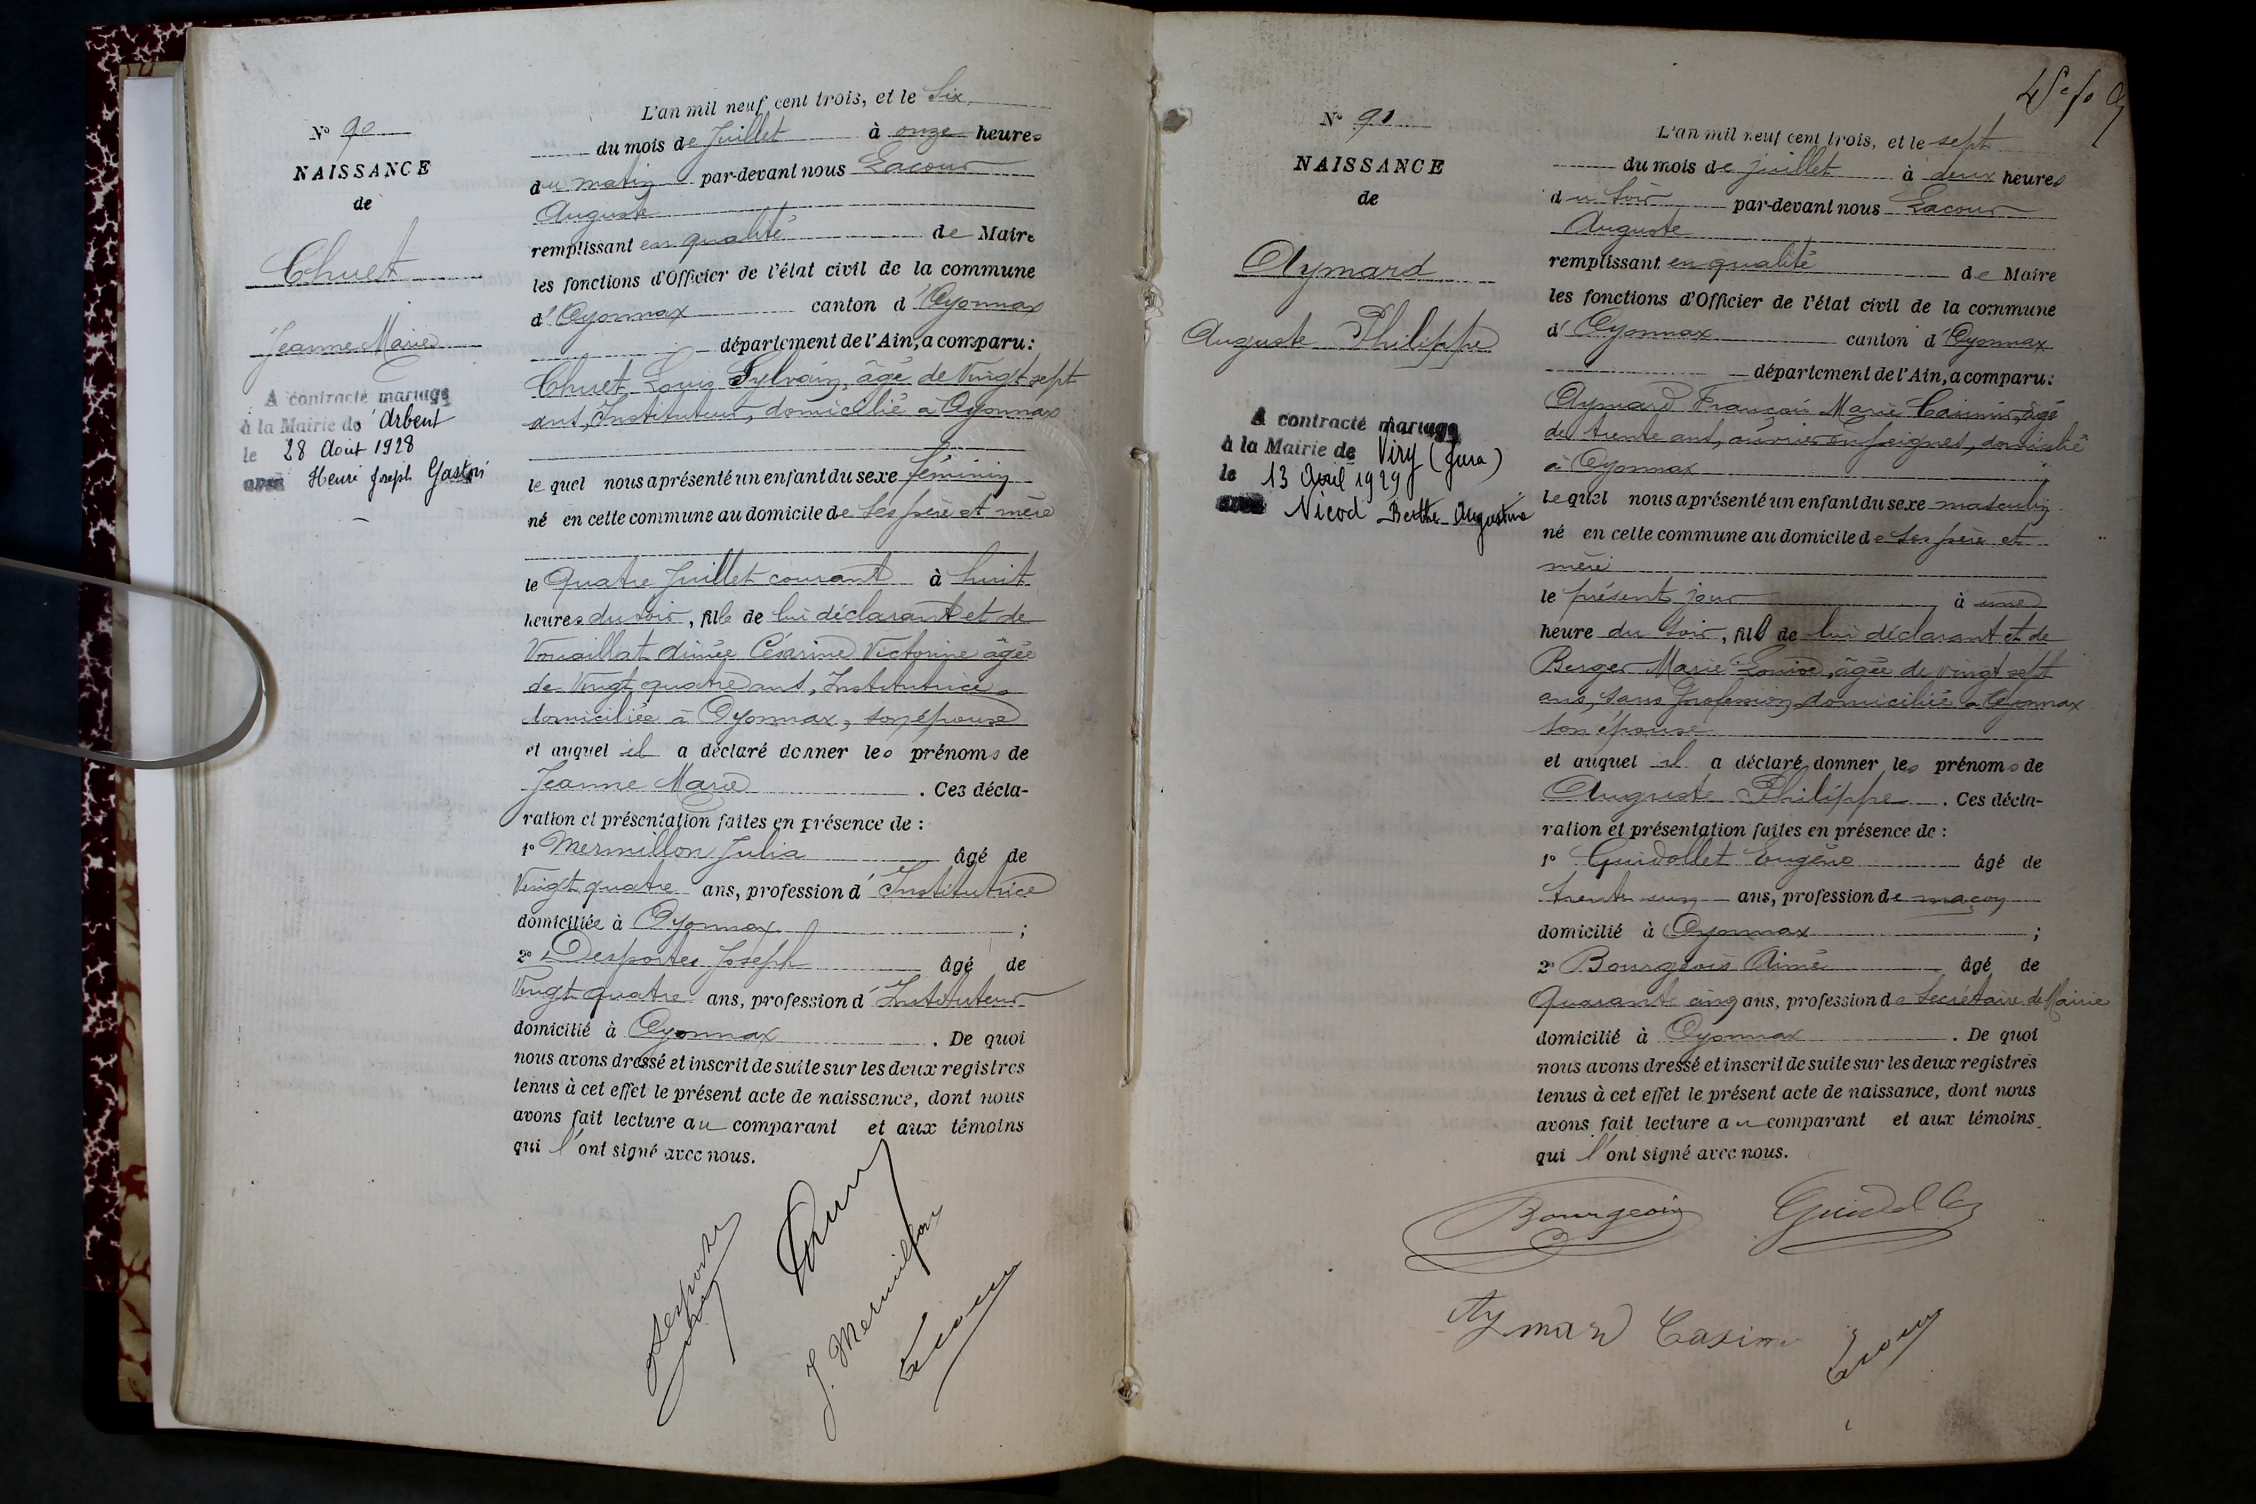 N° 90
NAISSANCE
de
Chuet
Jeanne Marie
A contracté mariage
à la Mairie de d'Arbent
le 28 Août 1928
avec Henri Joseph
L'an mil neuf cent trois, et le Six
du mois de Juillet à onze heures
du matin par-devant nous Lacour
Auguste
remplissant en qualité de Maire
les fonctions d'Officier de l'état civil de la commune
d'Oyonnax canton d'Oyonnax
département de l'Ain, a comparu:
Chuet Louis Sylvain, âgé de Vingt sept
ans, Instituteur, domicilié à Oyonnax
le quel nous a présenté un enfant du sexe féminin
né en cette commune au domicile de ses père et mère
le Quatre Juillet courant à huit
heures du soir, fille de lui déclarant et de
Vuaillat Aimée Césarine Victorine âgée
de Vingt quatre ans, Institutrice
domiciliée à Oyonnax, son épouse
et auquel il a déclaré donner les prénoms de
Jeanne Marie. Ces décla-
ration et présentation faites en présence de :
1° Mermillon Julia âgé de
Vingt quatre ans, profession d'Institutrice
domiciliée à Oyonnax ;
2° Desportes Joseph âgé de
Vingt quatre ans, profession d'Instituteur
domicilié à Oyonnax. De quoi
nous avons dressé et inscrit de suite sur les deux registres
tenus à cet effet le présent acte de naissance, dont nous
avons fait lecture au comparant et aux témoins
qui l'ont signé avec nous.
J. Mermillon
Lacour
N° 91
NAISSANCE
de
Aymard
Auguste Philippe
A contracté mariage
à la Mairie de Viry (Jura)
le 13 Avril 1929
avec Nicod Berthe Augustine
L'an mil neuf cent trois, et le sept
du mois de juillet à deux heures
du soir par-devant nous Lacour
Auguste
remplissant en qualité de Maire
les fonctions d'Officier de l'état civil de la commune
d'Oyonnax canton d'Oyonnax
département de l'Ain, a comparu:
Aymard François Marie Casimir, âgé
de trente ans, ouvrier en peignes, domicilié
à Oyonnax
le quel nous a présenté un enfant du sexe masculin
né en cette commune au domicile de ses père et
mère
le présent jour à une
heure du soir, fils de lui déclarant et de
Berger Marie Louise, âgée de vingt sept
ans, sans profession domiciliée à Oyonnax
son épouse
et auquel il a déclaré donner les prénoms de
Auguste Philippe. Ces décla-
ration et présentation faites en présence de :
1° Guidollet Eugène âgé de
trente ans, profession de maçon
domicilié à Oyonnax ;
2° Bourgeois Aimé âgé de
Quarante cinq ans, profession de Secrétaire de Mairie
domicilié à Oyonnax. De quoi
nous avons dressé et inscrit de suite sur les deux registres
tenus à cet effet le présent acte de naissance, dont nous
avons fait lecture au comparant et aux témoins
qui l'ont signé avec nous.
Bourgeois
Aymard Casimir
Lacour